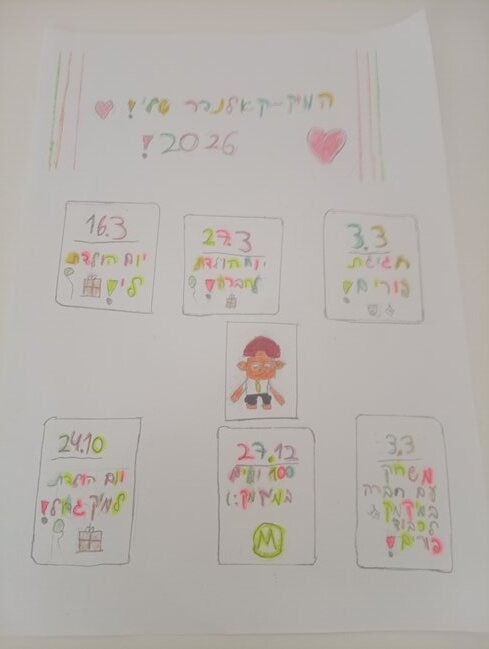 המיק-קאלנדר שלי!
2026!
3.3
חגיגת
פורים!
27.3
יום הולדת
לחברה!
16.3
יום הולדת
לי!
3.3
משחק
עם חברה
במיקמק
לכבוד
פורים!
27.12
100 ימים
במיקמק:)
M
24.10
יום הולדת
למיק גדול!